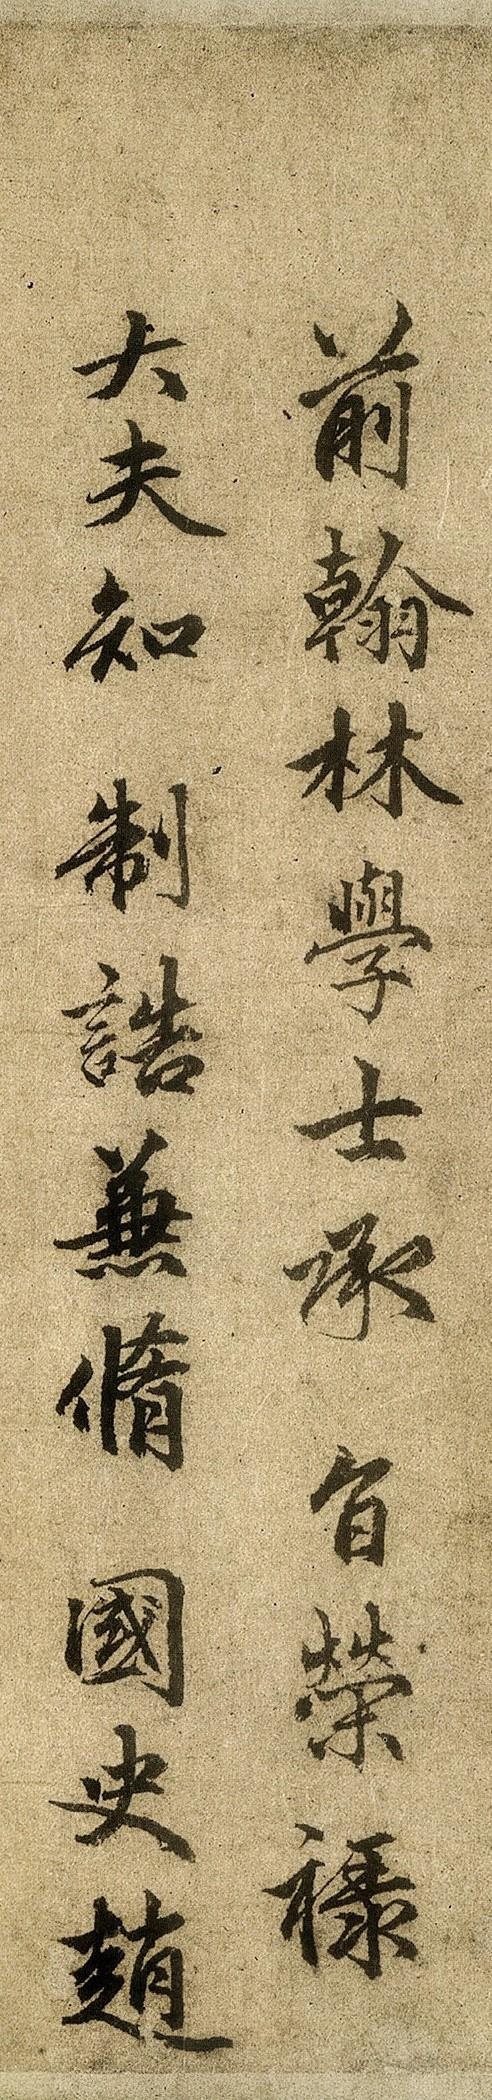 前翰林學士承旨榮祿
大夫知制誥兼脩國史趙